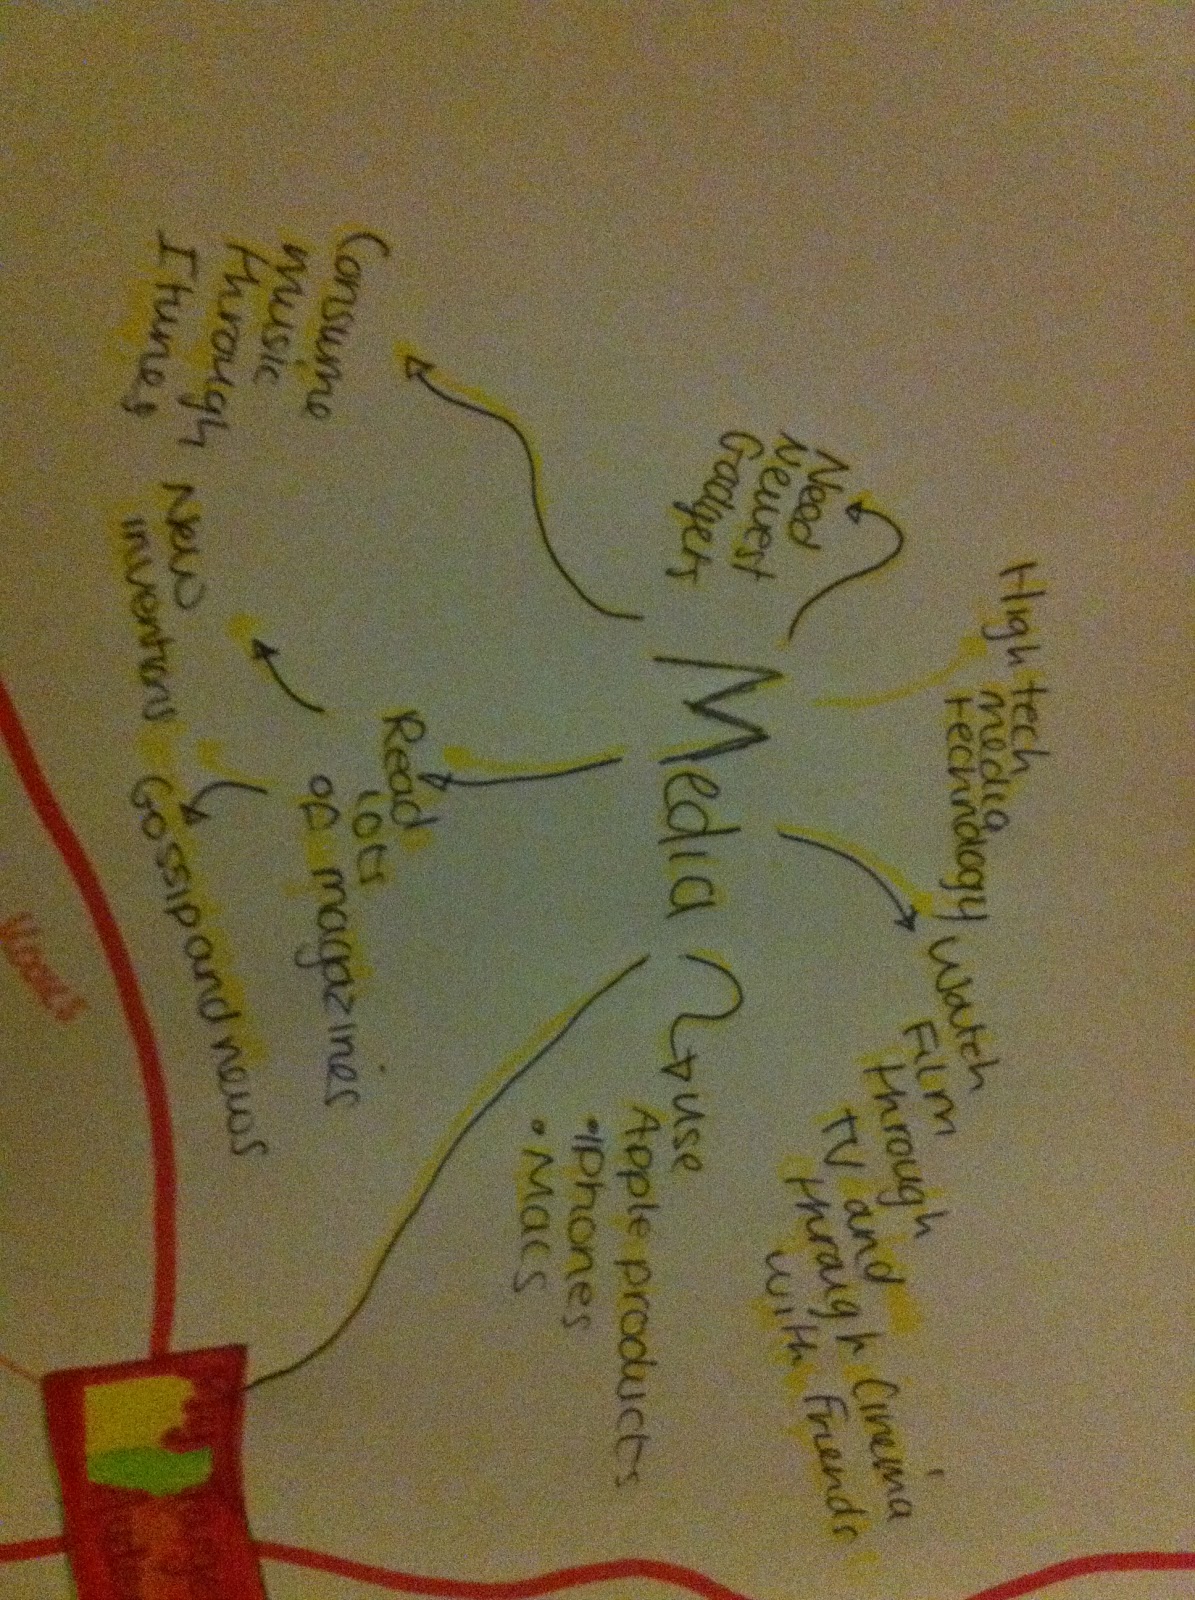 High tech
media
technology
Need
newest
Gadgets
Watch
Film
through
TV and
through Cinema
with Friends
Media
use
Apple products
• iphones
• Macs
Consume
music
through
Itunes
Read
lots
of magazines
New
inventions
Gossip and news